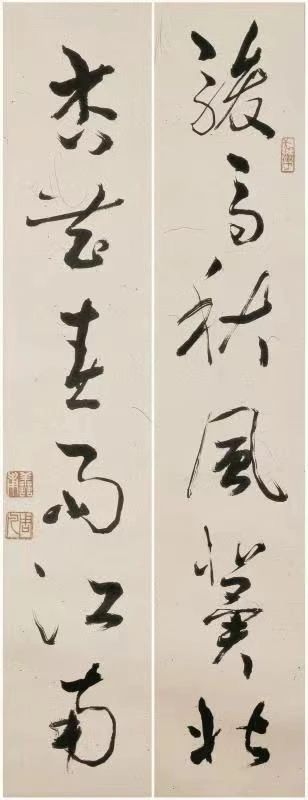 駿馬秋風冀北
杏花春雨江南